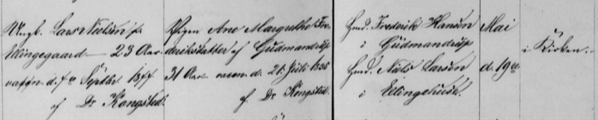 Ungk. Lars Nielsen fra
23 Aar
vaccn. d. Septbr. 1855
af Dr Kongsted.
Pigen Ane Margrethe Fre-
deriksdatter af Gudmandrup
31 Aar vaccn. d. 21 Juli
af Dr Kongsted.
Gmd. Frederik Hansen
i Gudmandrup
Gmd. Niels Larsen
i Ellingehuse.
Mai
d. 19de
i Kirken.